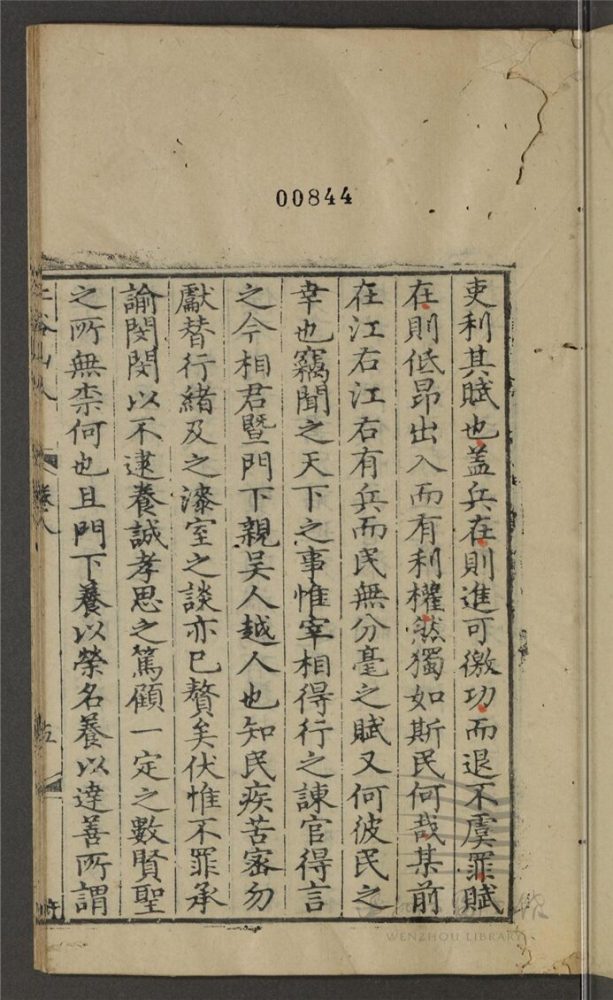 00844
吏利其賦也盖兵在則進可徼功而退不虞罪賦
在則低昂出入而有利權然獨如斯民何哉某前
在江右江右有兵而民無分毫之賦又何彼民之
幸也竊聞之天下之事惟宰相得行之諫官得言
之今相君暨門下親吴人越人也知民疾苦寧勿
獻替行緒及之漆室之談亦已贅矣伏惟不罪承
諭閔閔以不逮養誠孝思之篤顧一定之數賢聖
之所無柰何也且門下養以榮名養以達善所謂
卷八
五
WENZHOU LIBRARY